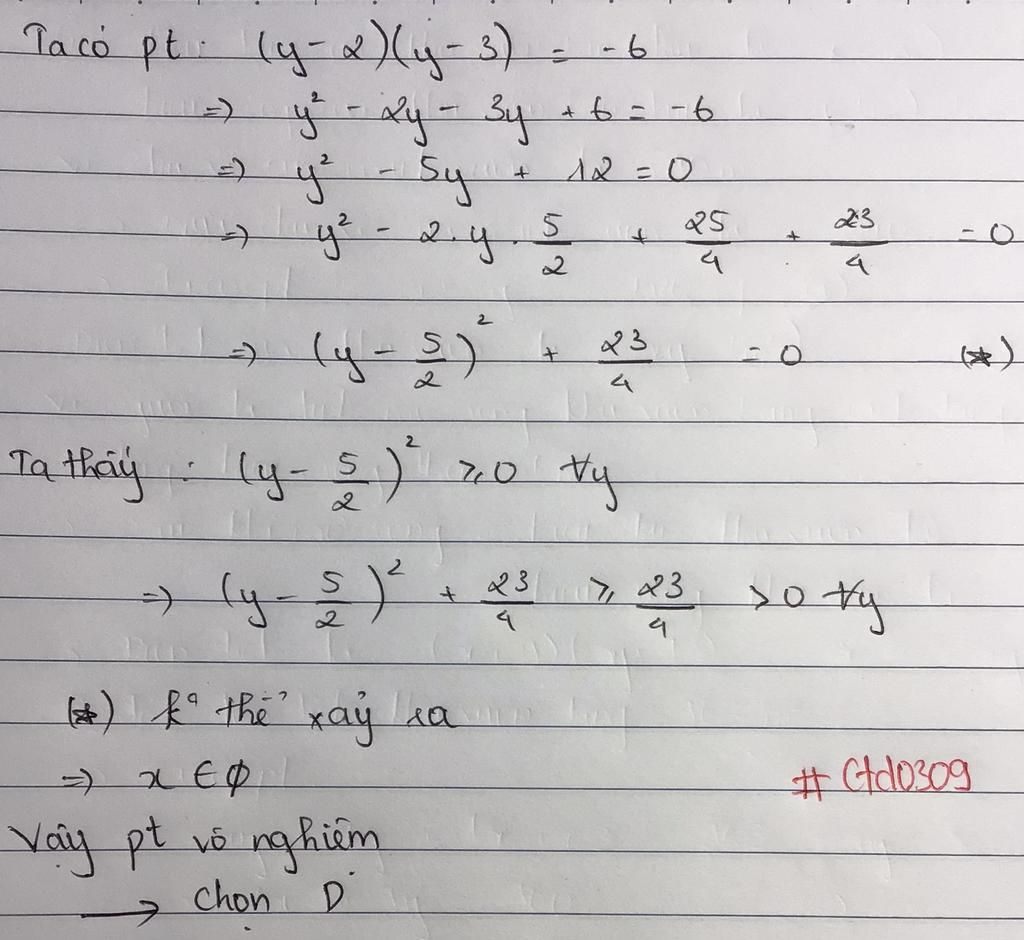 Ta có pt : (y - 2)(y - 3) = -6
=> y² - 2y - 3y + 6 = -6
=> y² - 5y + 12 = 0
=> y² - 2.y.5/2 + 25/4 + 23/4 = 0
=> (y - 5/2)² + 23/4 = 0 (*)
Ta thấy : (y - 5/2)² ≥ 0 ∀y
=> (y - 5/2)² + 23/4 ≥ 23/4 > 0 ∀y
(*) kº thể xảy ra
=> x ∈ ϕ
#Ctd0309
Vậy pt vô nghiệm
→ Chọn D